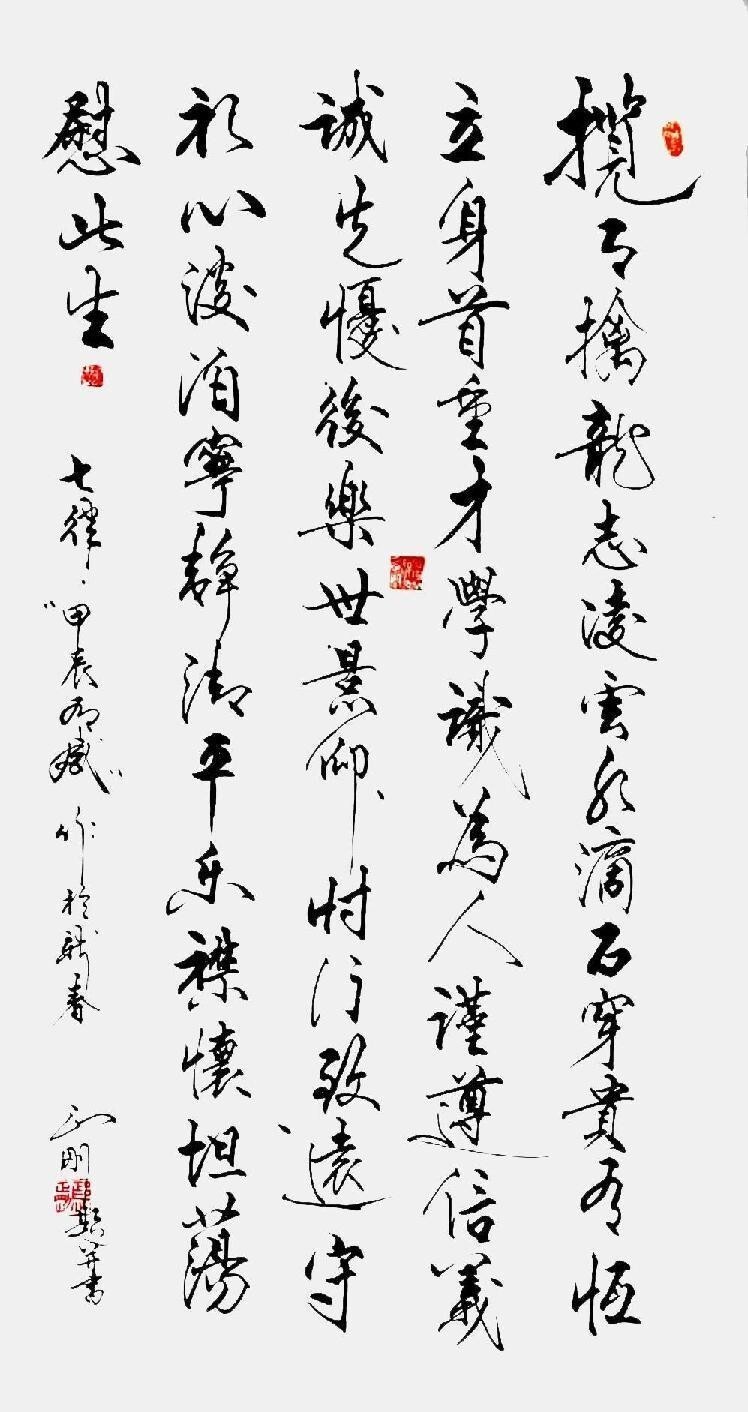 攬月擒龍志凌雲水滴石穿貴有恆
立身首重才學識為人謹遵信義
誠先懮後樂世景仰行致遠守
初心淡泊寧靜平乐襟懷坦蕩
慰此生
七律·“甲辰有賦”作於新春
剛撰并書